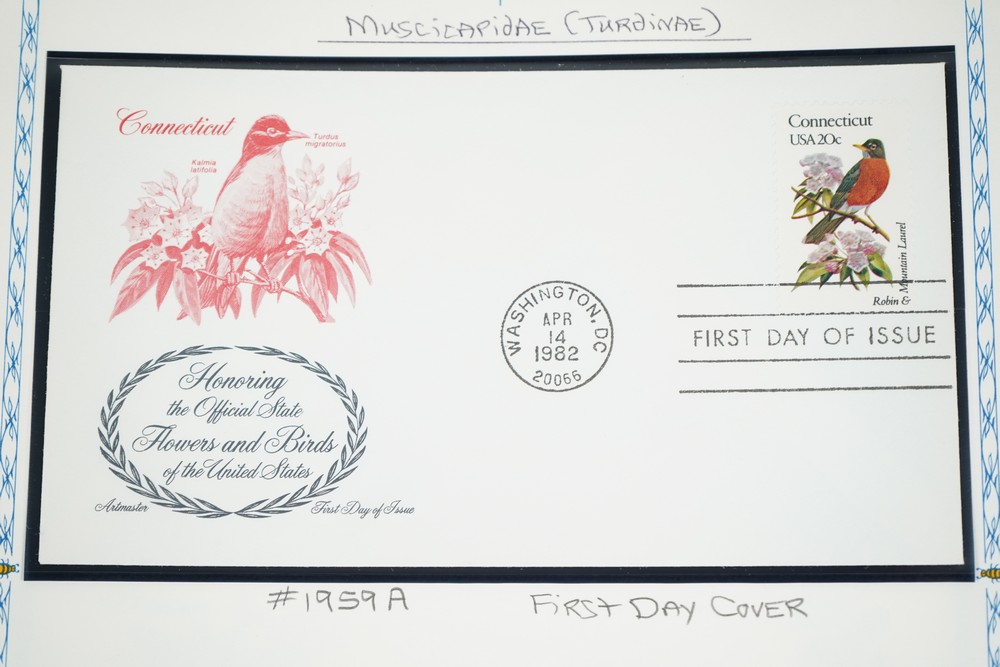 Muscicapidae (Turdinae)
Connecticut
Turdus
migratorius
Kalmia
latifolia
Connecticut
USA 20c
Robin & Mountain Laurel
WASHINGTON, DC
APR
14
1982
20066
FIRST DAY OF ISSUE
Honoring
the Official State
Flowers and Birds
of the United States
Artmaster
First Day of Issue
#1959A
First Day Cover